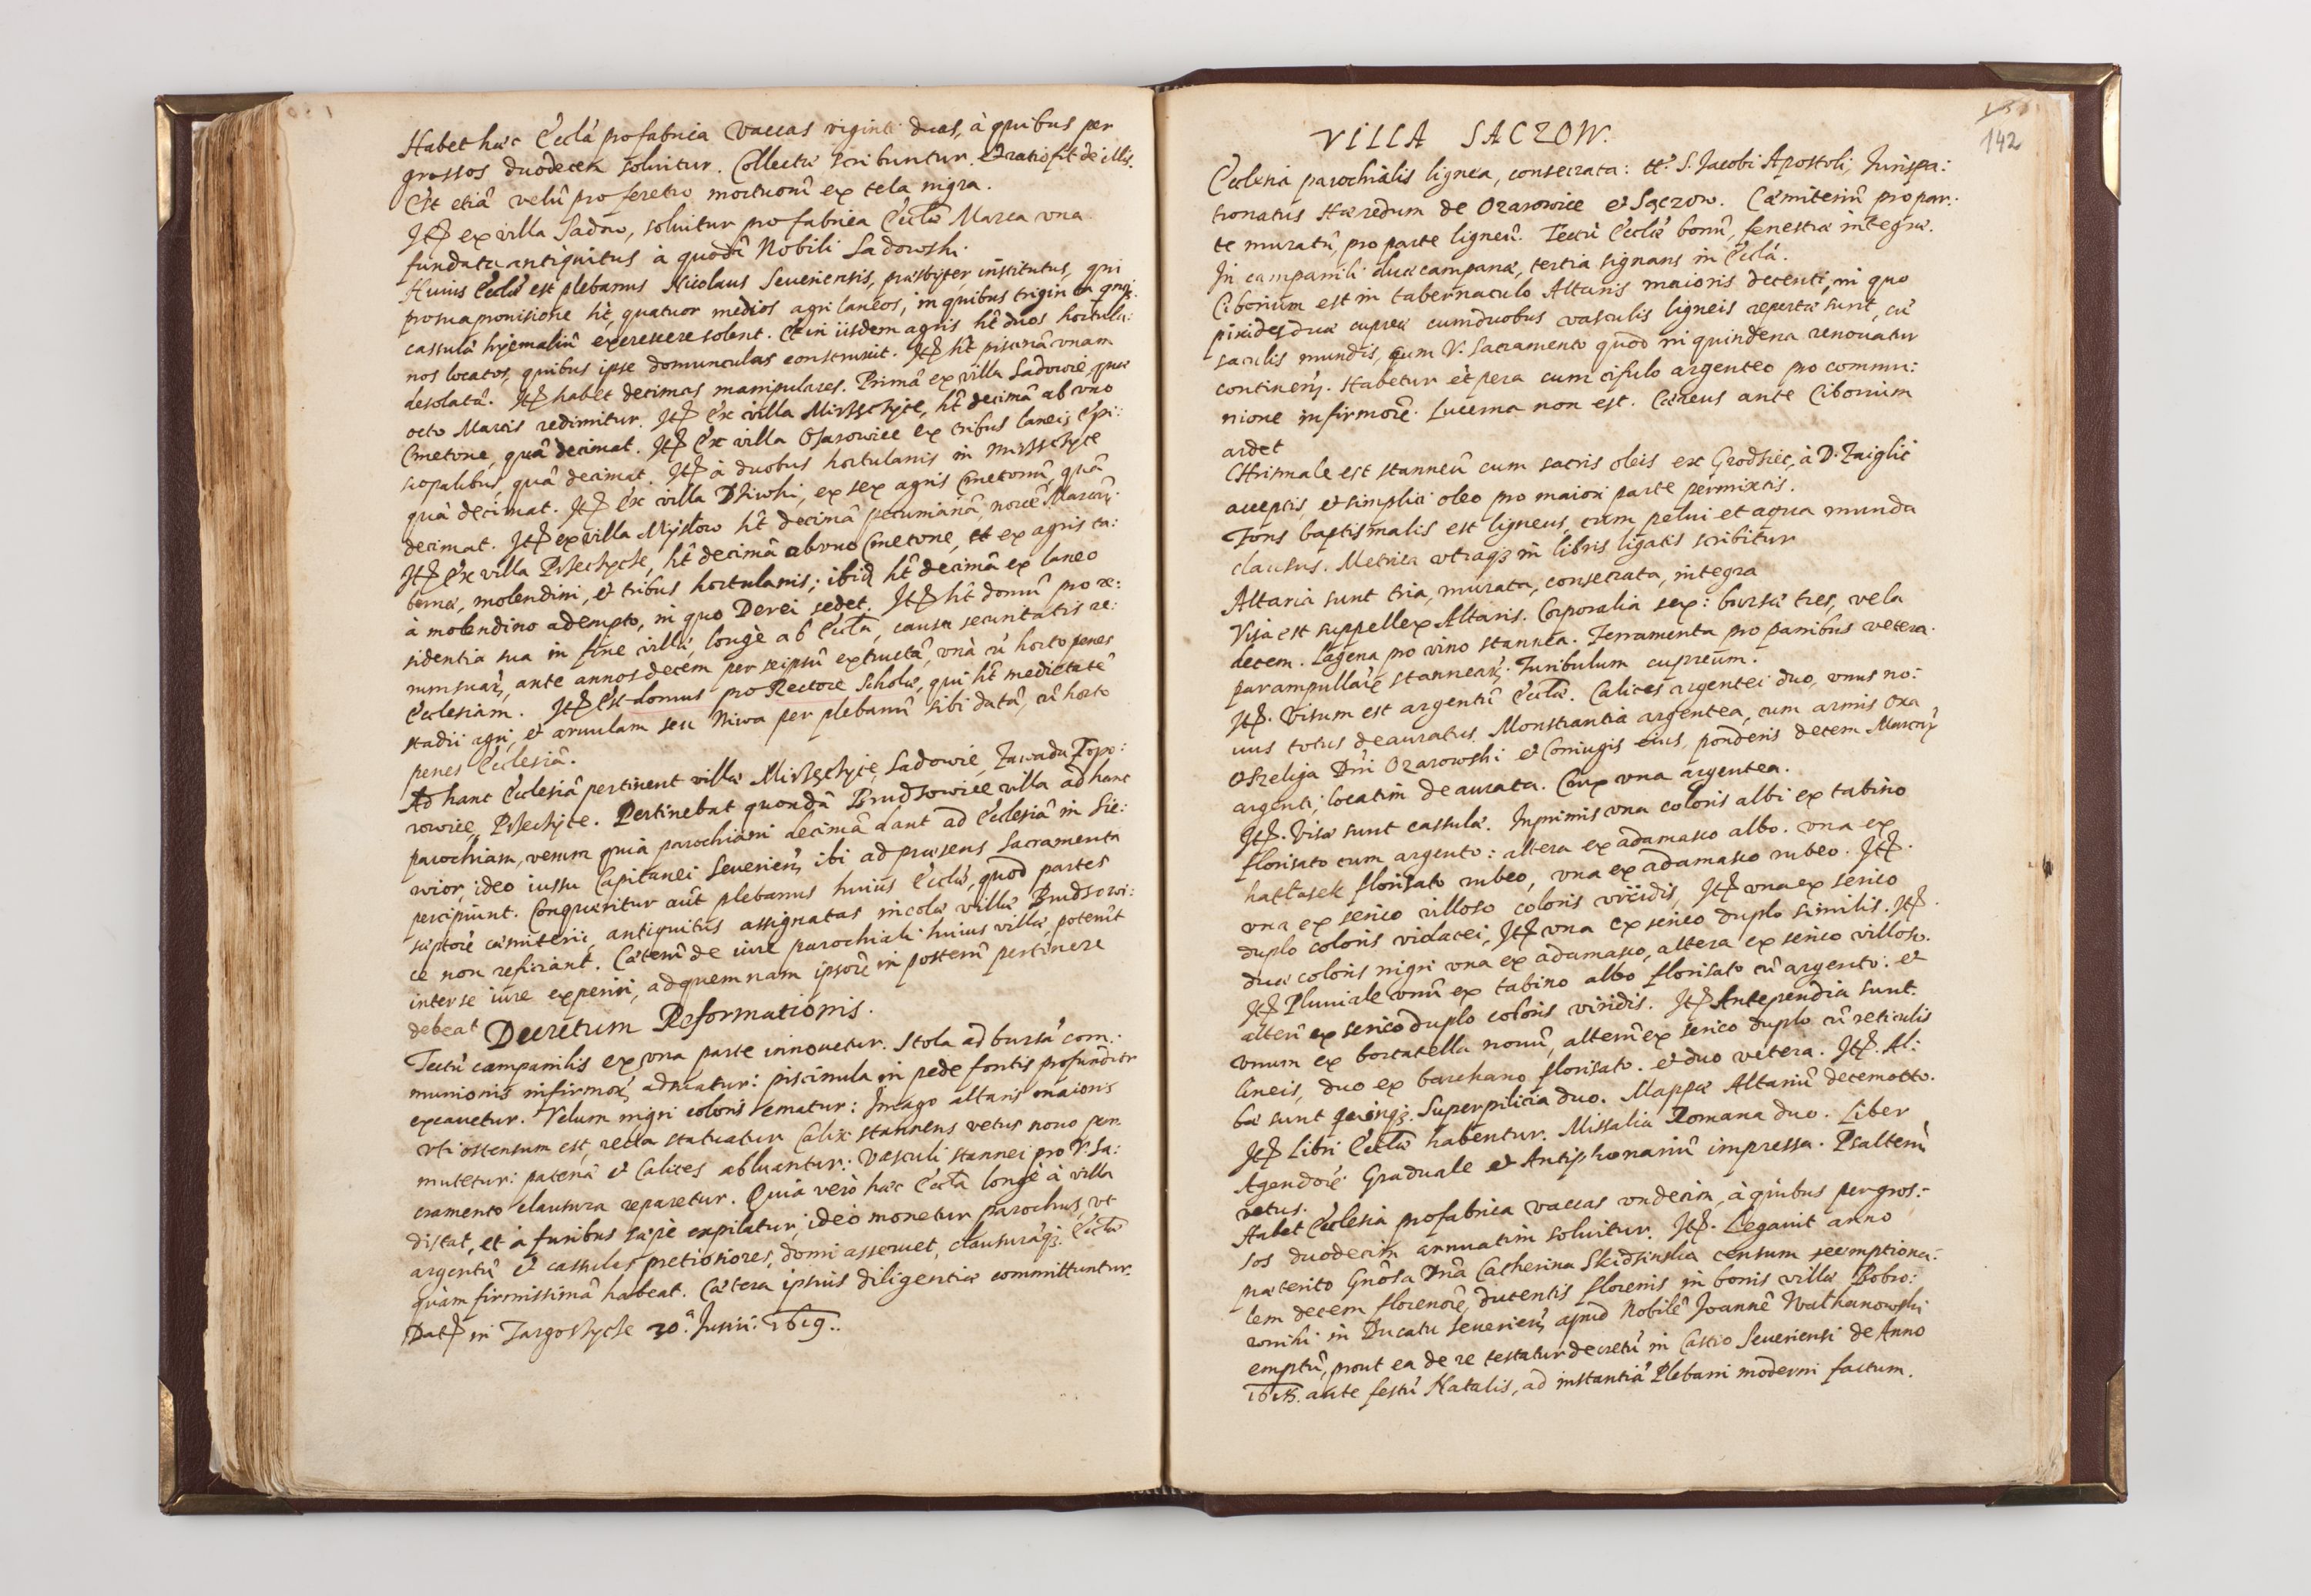 Habet hæc Eccla̅ pro fabrica vaccas viginti duas, à quibus per
grossos duodecim soluitur. Collectæ scribuntur. Et ratio fit de illis.
Est etiâ velû pro feretro mortuorû ex tela nigra.
Itẽ ex villa Sadow, soluitur pro fabrica Ecclæ Marca vna
fundata antiquitus à quodâ Nobili Sadowski.
Huius Ecclæ est plebanus Nicolaus Seueriensis, præsbyter institutus, qui
pro sua prouisione ht̂, quatuor medios agri laneos, in quibus triginta
cassulæ hyemaliû excrescere solent. Et in iisdem agris ht̂ duos hortula:
nos locatos, quibus ipse domunculas construxit. Itẽ ht̂ piscinâ vnam
desolatâ. Itẽ habet decimas manipulares. Primâ ex villa Sadowie, quæ
octo Marcis redimitur. Itẽ Ex villa Mirzęchyce, ht̂ decimâ ab vno
Cmetone, quâ decimat. Itẽ Ex villa Ożarowice ex tribus laneis Epi:
scopalibus, quâ decimat. Itẽ à duobus hortulanis in Mirzęchyce
quâ decimat. Itẽ Ex villa Dziwki, ex sex agris Cmetonû, quâ
decimat. Itẽ ex villa Mÿslow ht̂ decimâ pecuniariâ, nouê Marcarũ.
Itẽ Ex villa Przeczycze, ht̂ decimâ ab vno Cmetone, et ex agris ta:
bernæ, molendini, et tribus hortulanis; ibid̃ ht̂ decimâ ex laneo
à molendino adempto, in quo Derei sedet. Itẽ ht̂ domû pro re:
sidentia sua in fine villæ, longè ab Eccla̅, causa securitatis re:
rum suarũ, ante annos decem per seipsû extructâ, vnà cû horto penes
Ecclesiam. Itẽ Est domus pro Rectore Scholæ, qui ht̂ medietatê
stadii agri, et aruulam seu Niwa per plebanû sibi datâ, cû horto
penes Ecclesiâ.
Ad hanc Ecclesiâ pertinent villæ Mirzęchyce, Sadowie, Zawada, Topo:
rowice, Przeczyce. Pertinebat quondâ Brudzowice villa ad hanc
parochiam, verum quia parochiani decimâ dant ad Ecclesiâ in Sie:
wior, ideo iussu Capitanei Seuerieñ, ibi ad præsens Sacramenta
percipiunt. Conquæritur aût plebanus huius Ecclæ, quod partes
sæptorũ cæmiterii, antiquitus assignatas incolæ villæ Brudzowi:
ce non reficiant. Cæterû de iure parochiali huius villæ, poterût
inter se iure experiri, ad quemnam ipsorũ in posterû pertinere
debeat
Decretum Reformationis.
Tectû campanilis ex vna parte innouetur. Stola ad bursâ com:
munionis infirmorũ adnciatur: piscinula in pede fontis profundior
excauetur. Velum nigri coloris ematur: Imago altaris maioris
vti ostensum est, recta statuatur Calix stanneus vetus nouo per
mutetur: patenæ et Calices abluantur: Vasculi stannei pro V. Sa:
cramento clausura reparetur. Quia verò hæc Eccla̅ longè à villa
distat, et à furibus sæpè expilatur; ideo monetur parochus, vt
argentû et cassulas pretiosiores, domi asseruet, clausurâq́; Ecclæ
quàm firmissimâ habeat. Cætera ipsius diligentiæ committuntur.
Datũ in Targoszycze 30.ª Junii. 1619.
142
VILLA SACZOW.
Ecclesia parochialis lignea, consecrata: tt.º S. Jacobi Apostoli, Jurispa:
tronatus Hæredum de Ozarowice et Sączow. Cæmiteriû pro par:
te muratû, pro parte ligneû. Tectû Ecclæ bonû, fenestræ integræ.
In campanili duæ campanæ, tertia signans in Eccla̅.
Ciborium est in tabernaculo Altaris maioris decenti, in quo
pixides duæ cupreæ cum duobus vasculis ligneis repertæ sunt, cû
saculis mundis, cum V. Sacramento quod in quindena renouatur
continenẽ. Habetur et pera cum cifulo argenteo pro commu:
nione infirmorũ. Lucerna non est. Cæreus ante Ciborium
ardet
Chrismale est stanneû cum sacris oleis ex Grodziec, à D. Zaiglic
acceptis, et simplici oleo pro maiori parte permixtis.
Fons baptismalis est ligneus, cum pelui et aqua munda
clausus. Metrica vtraq́; in libris ligatis scribitur
Altaria sunt tria, murata, consecrata, integra
Visa est suppellex Altaris. Corporalia sex: bursæ tres, vela
decem. Lagena pro vino stannea. Ferramenta pro panibus vetera.
par ampullarũ stannearũ. Turibulum cupreum.
Itẽ. Visum est argentû Ecclæ. Calices argentei duo, vnus no:
uus totus deauratus. Monstrantia argentea, cum armis Oxa
Oszeliga Dñi Ozarowski et Coniugis eius, ponderis decem Marcarũ
argenti; locatim deaurata. Crux vna argentea.
Itẽ. Visæ sunt cassulæ. Inprimis vna coloris albi ex tabino
florisato cum argento: altera ex adamasco albo. vna ex
hatłasek florisato rubeo, vna ex adamasco rubeo. Itẽ.
vna ex serico villoso coloris viridis, Itẽ vna ex serico
duplo coloris violacei, Itẽ vna ex serico duplo similis. Itẽ.
duæ coloris nigri vna ex adamasco, altera ex serico villoso.
Itẽ Pluuiale vnû ex tabino albo florisato cû argento: et
alterû ex serico duplo coloris viridis. Itẽ Antependia sunt.
vnum ex bortatella nouû, alterû ex serico duplo cû reticulis
lineis, duo ex barchano florisato. et duo vetera. Itẽ. Al:
bæ sunt quinq́;. Superpilicia duo. Mappæ Altariû decemotto.
Itẽ Libri Ecclæ habentur. Missalia Romana duo. Liber
Agendorũ. Graduale et Antiphonariû impressa. Psalteriû
vetus.
Habet Ecclesia pro fabrica vaccas vndecim, à quibus per gros:
sos duodecim annuatim soluitur. Itẽ. Legauit anno
præterito Gñosa Dñâ Catherina Skidzinska censum reemptiona:
lem decem florenorũ, ducentis florenis in bonis villæ Bobro:
wniki in Ducatu Seuerieñ apud Nobilê Joannê Wakhanowski
emptû, prout ea de re testatur decretû in Castro Seueriensi de Anno
1618. ante festû Natalis, ad instantiâ Plebani moderni factum.